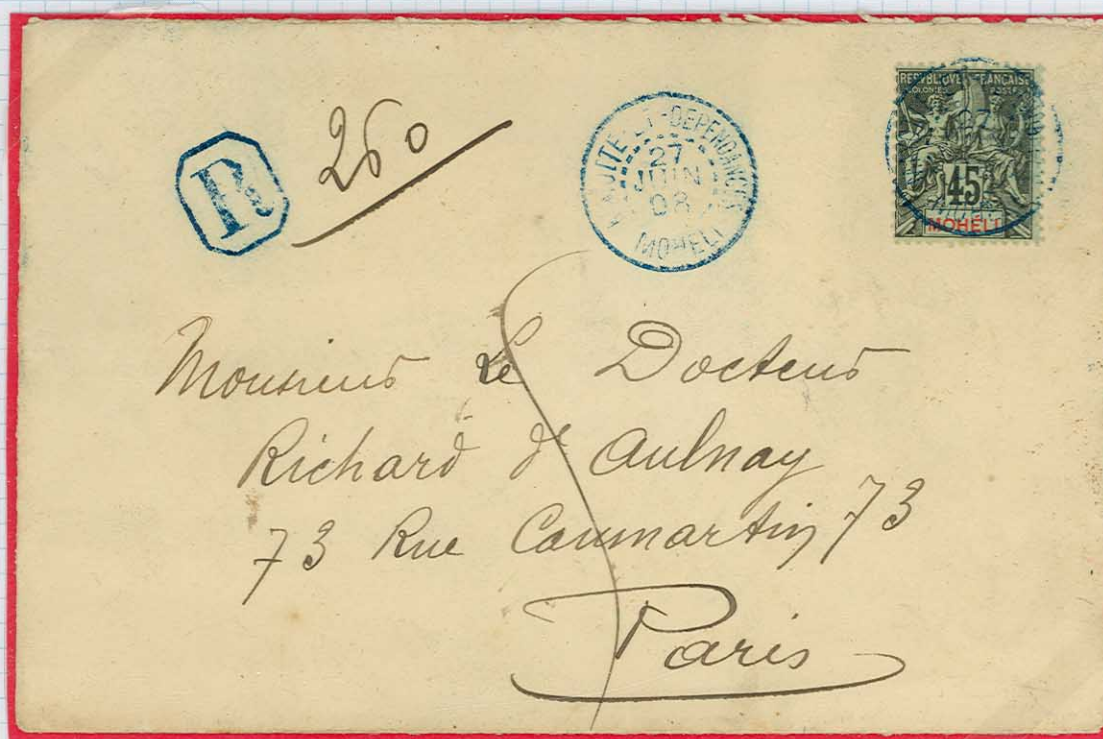 R 260
MAYOTTE-ET-DEPENDANCES
27
JUIN
08
MOHELI
REPUBLIQUE FRANÇAISE
COLONIES POSTES
45
MOHÉLI
Monsieur Le Docteur
Richard d'Aulnay
73 Rue Caumartin 73
Paris